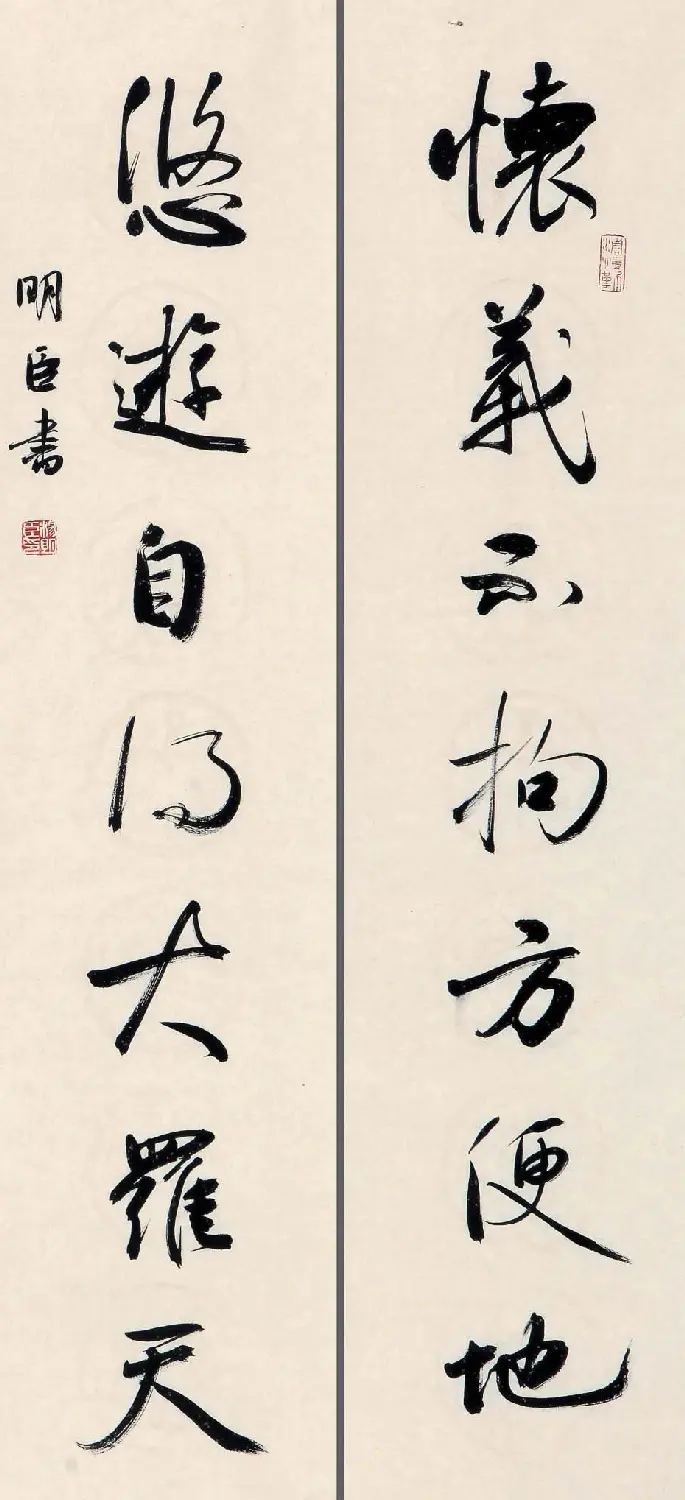 懷義不拘方便地
悠遊自得大羅天
明臣書